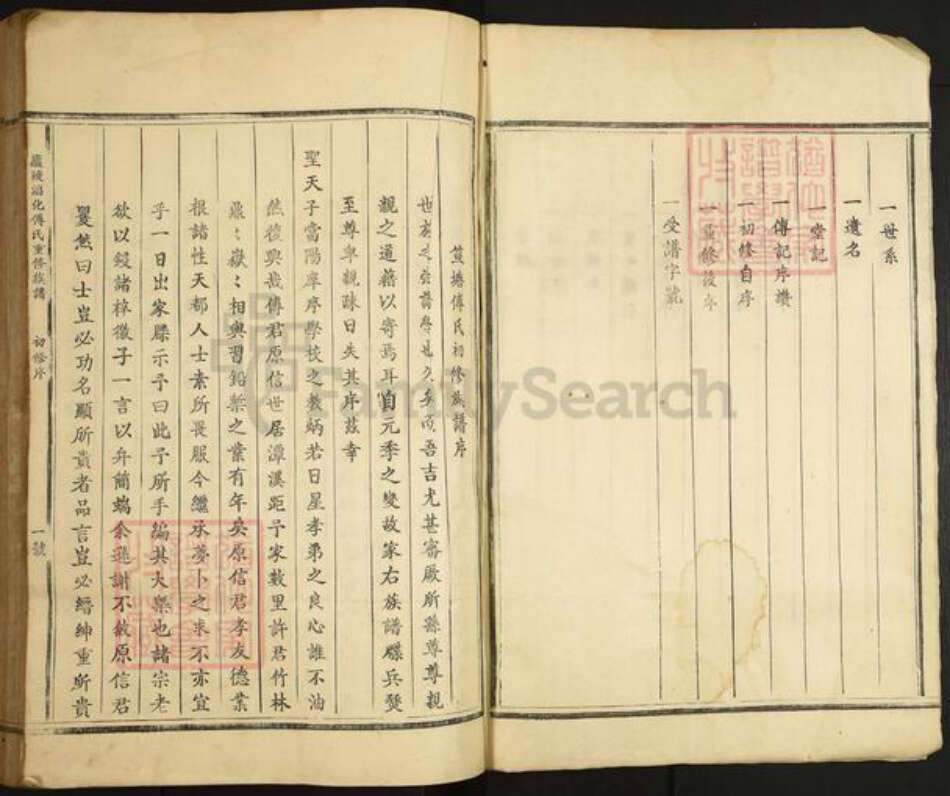 一世系
一遺名
一堂記
一傳記序讚
一初修自序
一重修後序
一受譜字號
傅氏初修族譜序
譜學也久矣 吾吉尤甚審厥所繇尊尊親
親之道藉以寄焉耳自元季之變故家右族譜牒兵燹
至尊卑親疎日失其序茲幸
聖天子當陽庠序學校之教炳若日星孝弟之良心誰不油
然復興哉傅君原信世居潭溪距予家數里許君竹林
鼎〻嶽〻相與習鉛槧之業有年矣原信君孝友德業
根諸性天都人士素所畏服今繼承夢卜之求不亦宜
乎一日出家牒示予曰此予所手編其大槩也諸宗老
欲以鋟諸梓徵予一言以弁簡端余遜謝不敏原信君
矍然曰士豈必功名顯所貴者品言豈必縉紳重所貴
廬陵 化傅氏重修族譜
初修序
一號
FamilySearch